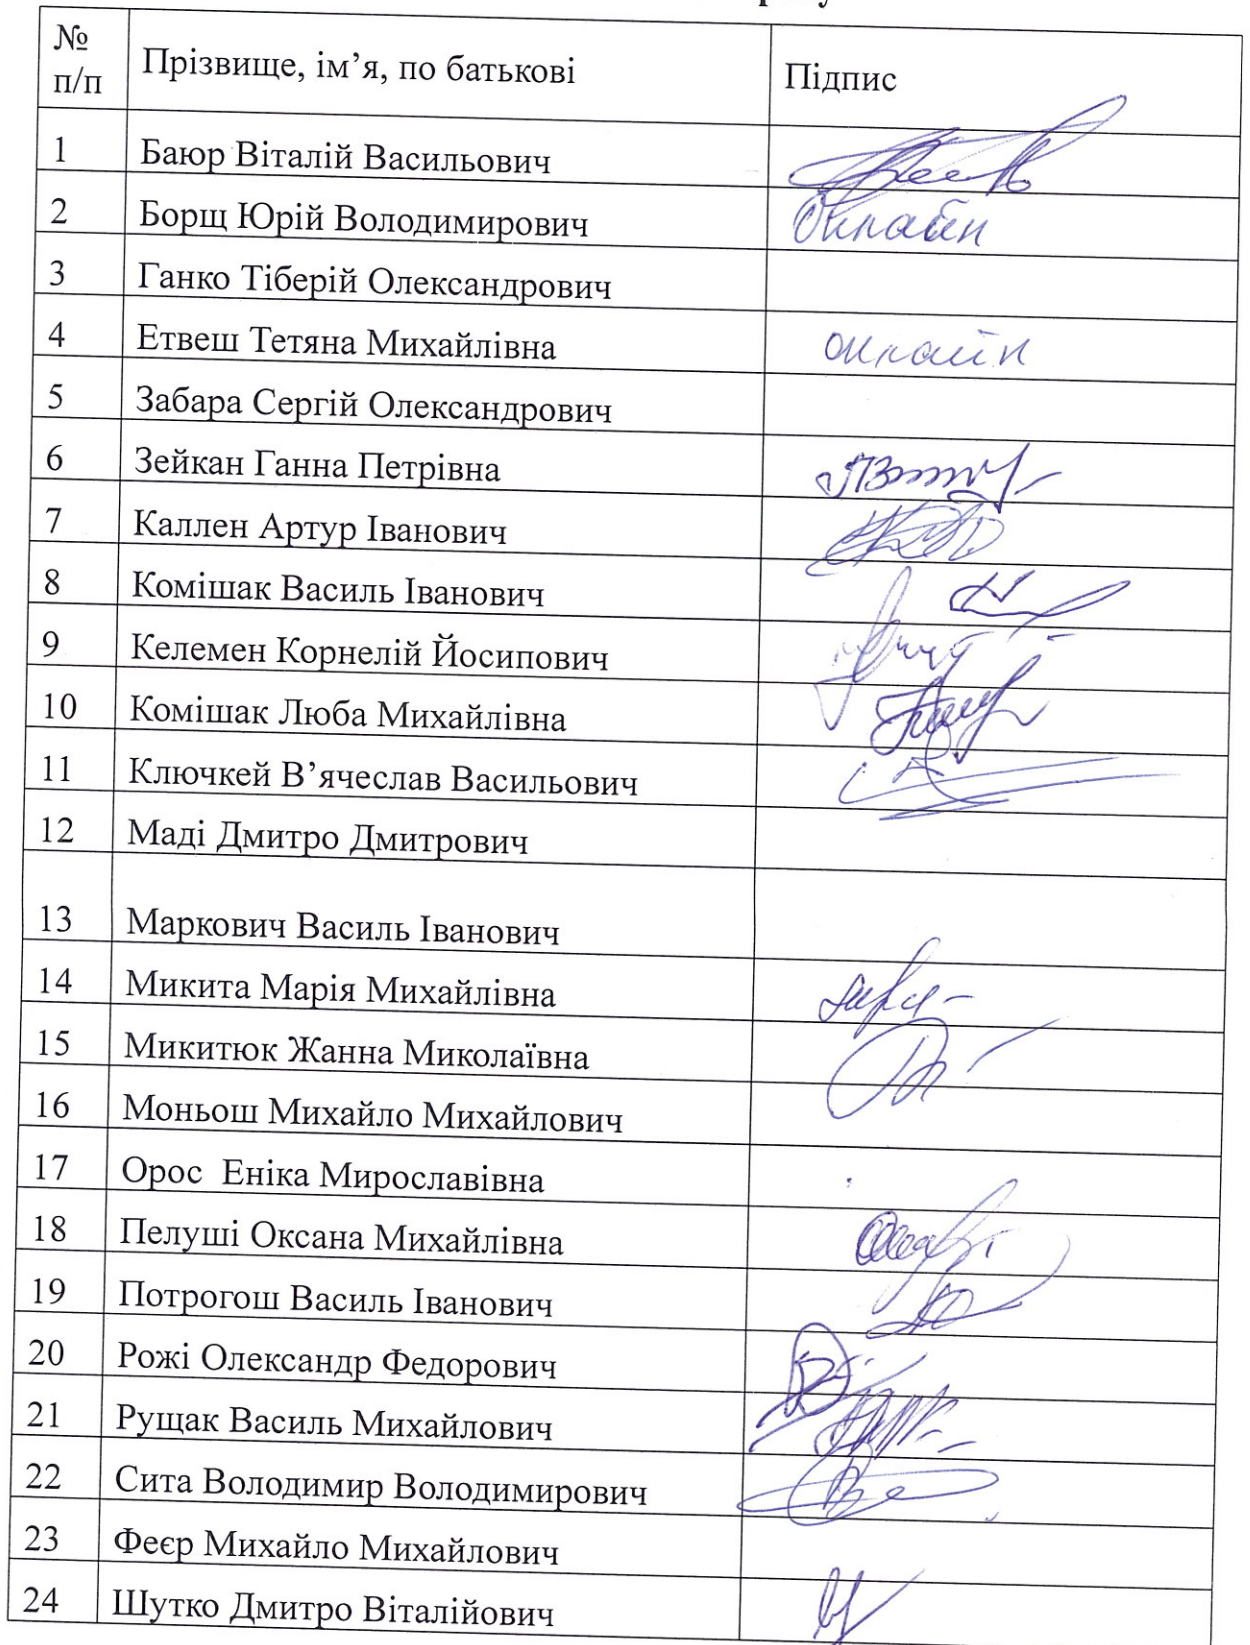 № п/п Прізвище, ім’я, по батькові Підпис
1 Баюр Віталій Васильович
2 Борщ Юрій Володимирович Онлайн
3 Ганко Тіберій Олександрович
4 Етвеш Тетяна Михайлівна онлайн
5 Забара Сергій Олександрович
6 Зейкан Ганна Петрівна
7 Каллен Артур Іванович
8 Комішак Василь Іванович
9 Келемен Корнелій Йосипович
10 Комішак Люба Михайлівна
11 Ключкей В’ячеслав Васильович
12 Маді Дмитро Дмитрович
13 Маркович Василь Іванович
14 Микита Марія Михайлівна
15 Микитюк Жанна Миколаївна
16 Моньош Михайло Михайлович
17 Орос Еніка Мирославівна
18 Пелуші Оксана Михайлівна
19 Потрогош Василь Іванович
20 Рожі Олександр Федорович
21 Рущак Василь Михайлович
22 Сита Володимир Володимирович
23 Феєр Михайло Михайлович
24 Шутко Дмитро Віталійович